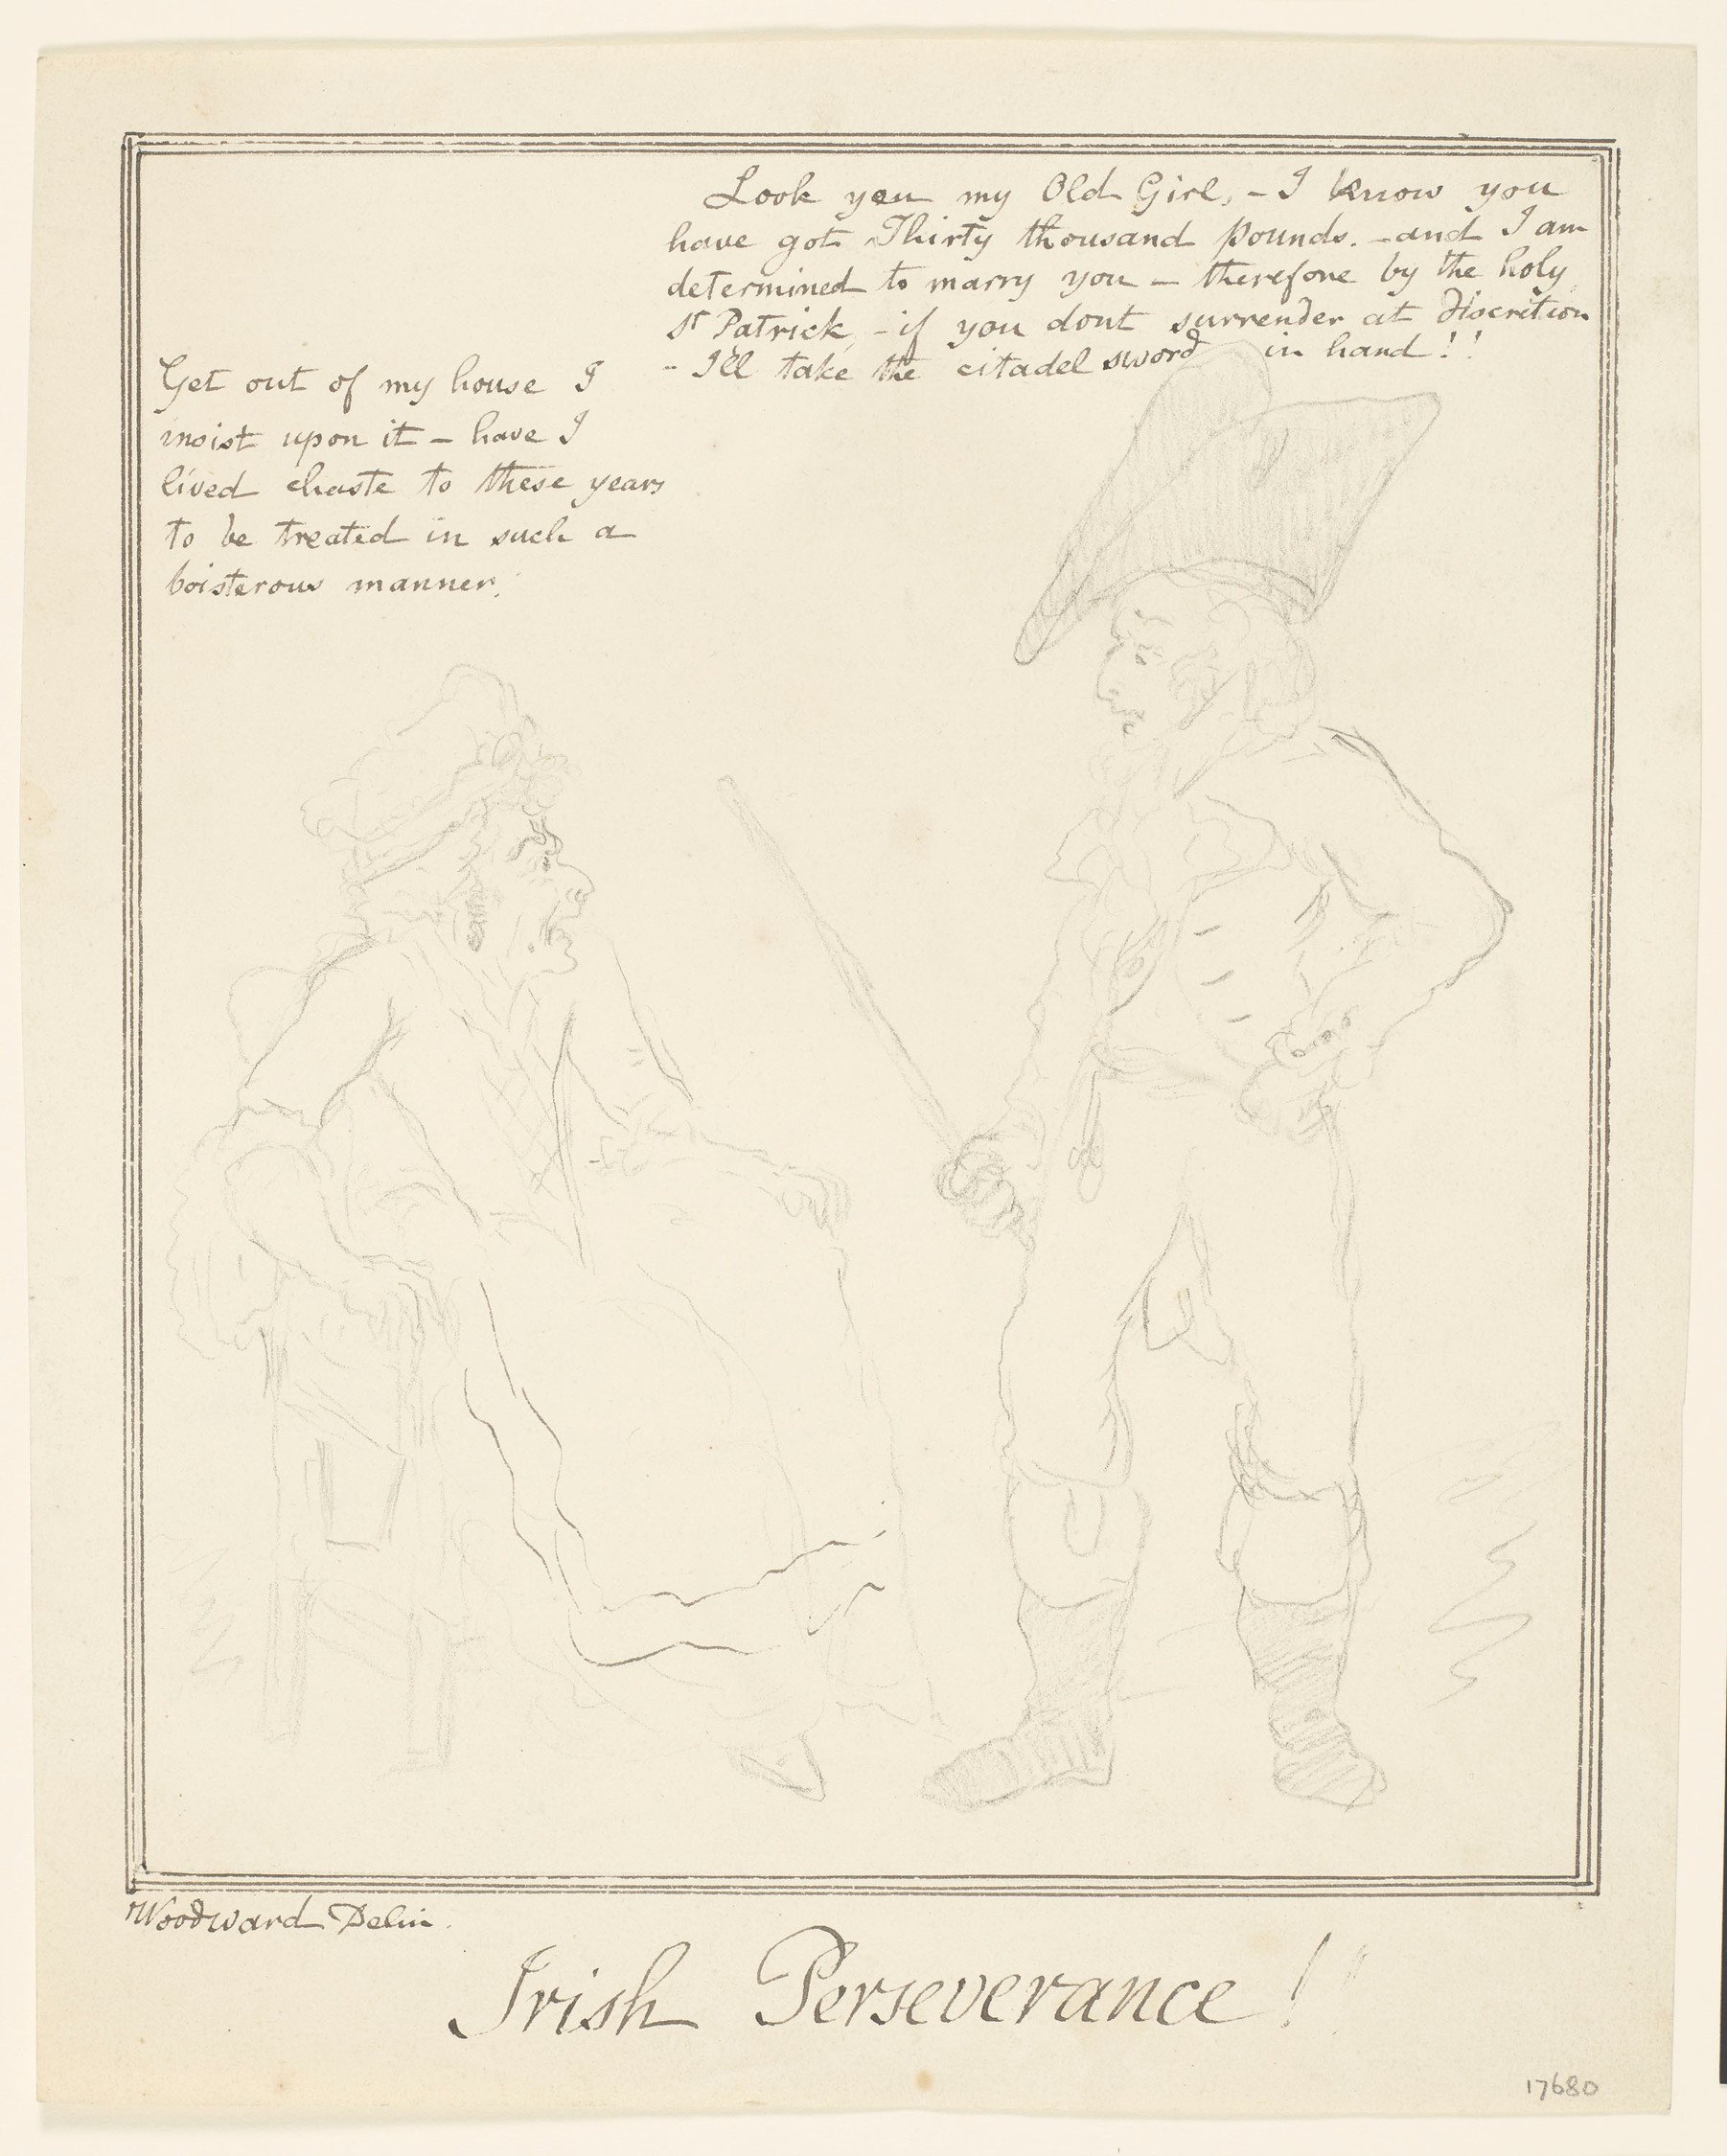 Look you my Old Girl, - I know you
have got Thirty thousand pounds. - and I am
determined to marry you - therefore by the holy
St Patrick, - if you dont surrender at discretion
- I'll take the citadel sword in hand!!
Get out of my house I
insist upon it - have I
lived chaste to these years
to be treated in such a
boisterous manner.
Woodward Delin.
Irish Perseverance!!
17680